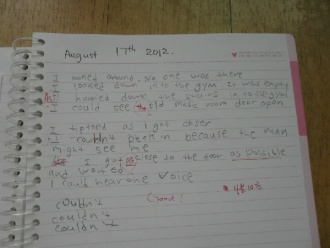 August 17th 2012.
I looked around. No one was there
I looked down into the gym. It was empty
I hurried down the stairs to the gym
I could see the old mats room door open
I tiptoed as I got closer
I couldn't peek in because the man
might see me
I got close to the door as possible
and
I can't hear one voice
couldn't
couldn't
couldn't